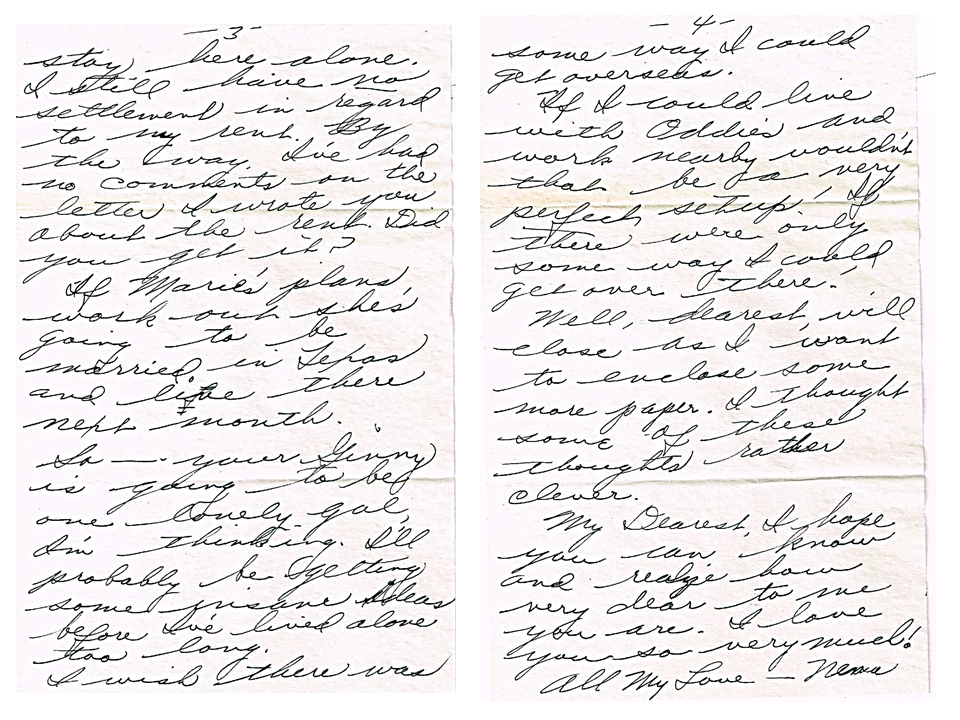 -3-
stay here alone.
I still have no
settlement in regard
to my rent. By
the way. I've had
no comments on the
letter I wrote you
about the rent. Did
you get it?
If Marie's plans,
work out she's
going to be
married in Texas
and live there
next month.
So — your Ginny
is going to be
one lonely gal,
I'm thinking. I'll
probably be getting
some insane ideas
before I've lived alone
too long.
I wish there was
-4-
some way I could
get overseas.
If I could live
with Oddie's and
work nearby wouldn't
that be a very
perfect setup! If
there were only
some way I could
get over there.
Well, dearest, will
close as I want
to enclose some
more paper. I thought
some of these
thoughts rather
clever.
My Dearest, I hope
you can know
and realize how
very dear to me
you are. I love
you so very much!
All My Love —